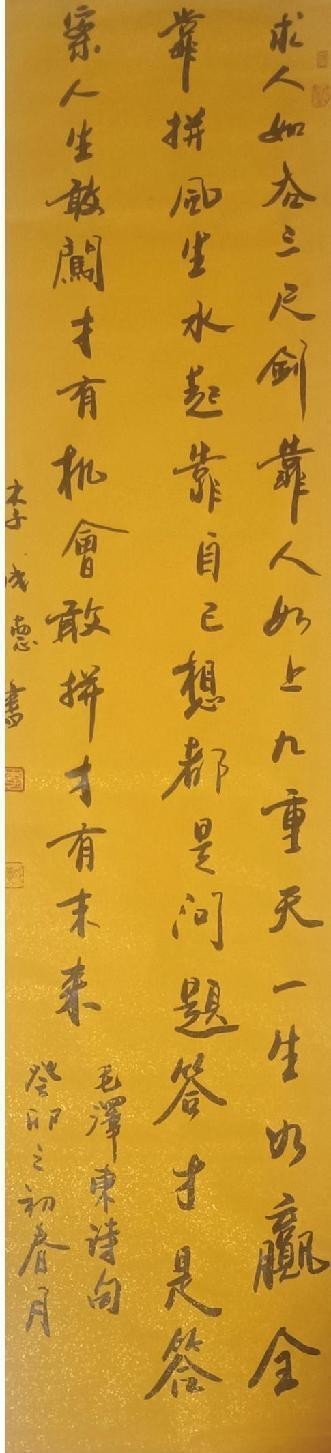 求人如吞三尺剑靠人如上九重天一生如赢全
靠拼风生水起靠自己想都是问题答才是答
案人生敢闯才有机會敢拼才有未来
毛澤東诗句
癸卯之初春月
李成惠書